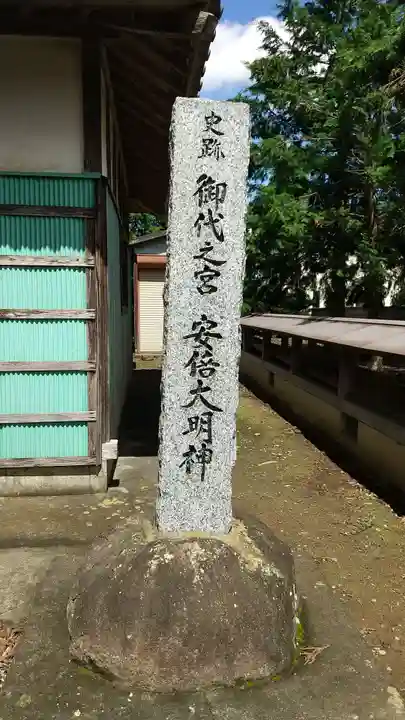 史跡 御代之宮 安倍大明神